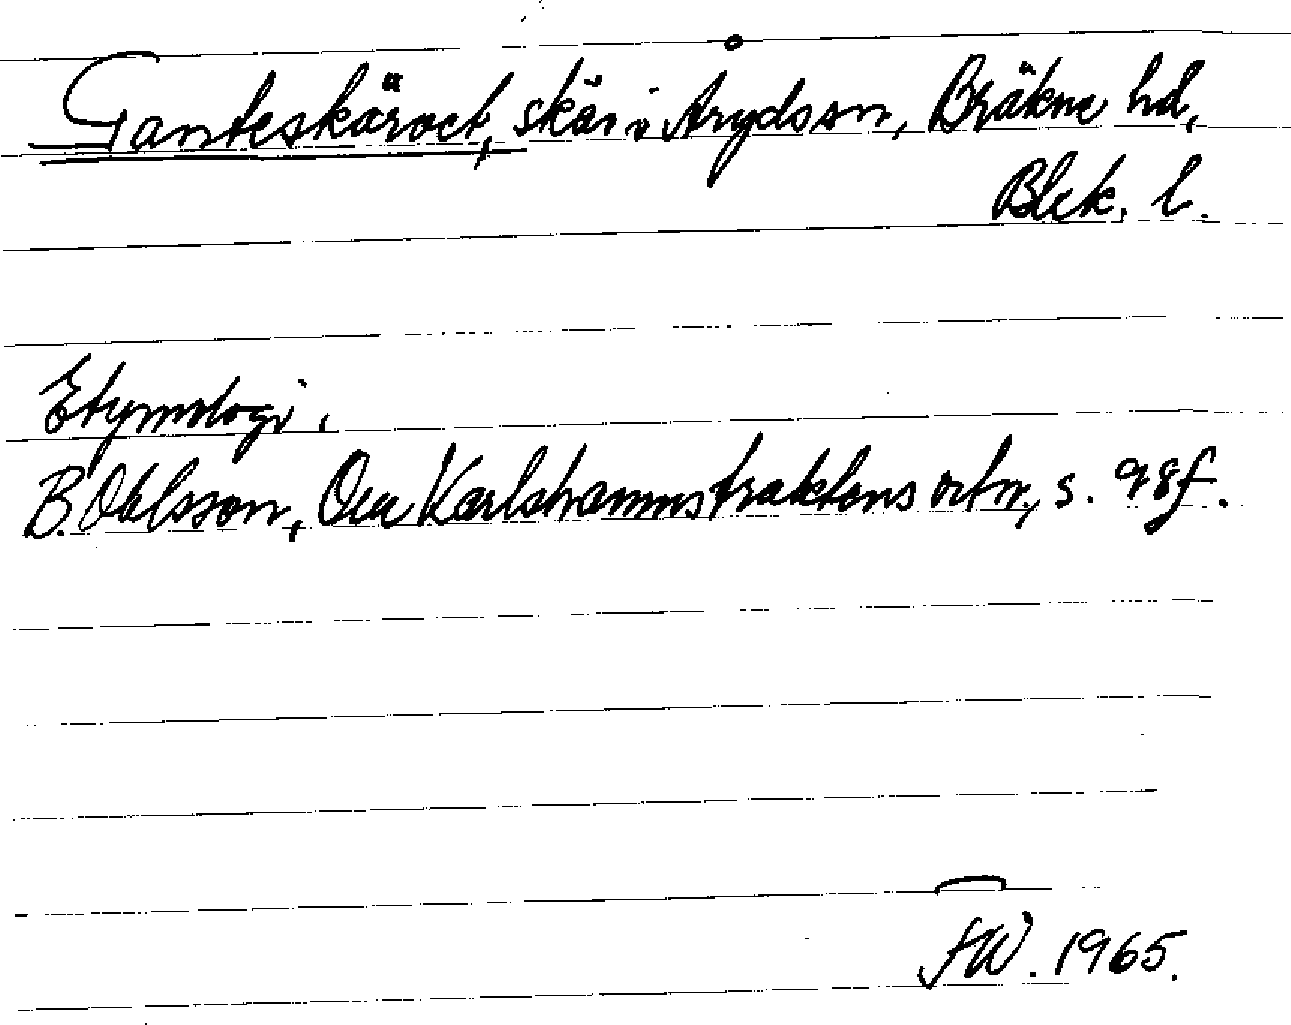 Ganteskäret, skär i Åryds sn, Bräkne hd,
Blek. l.
Etymologi.
B. Ohlsson, Om Karlshamnstraktens ortn, s. 98f.
JW. 1965.